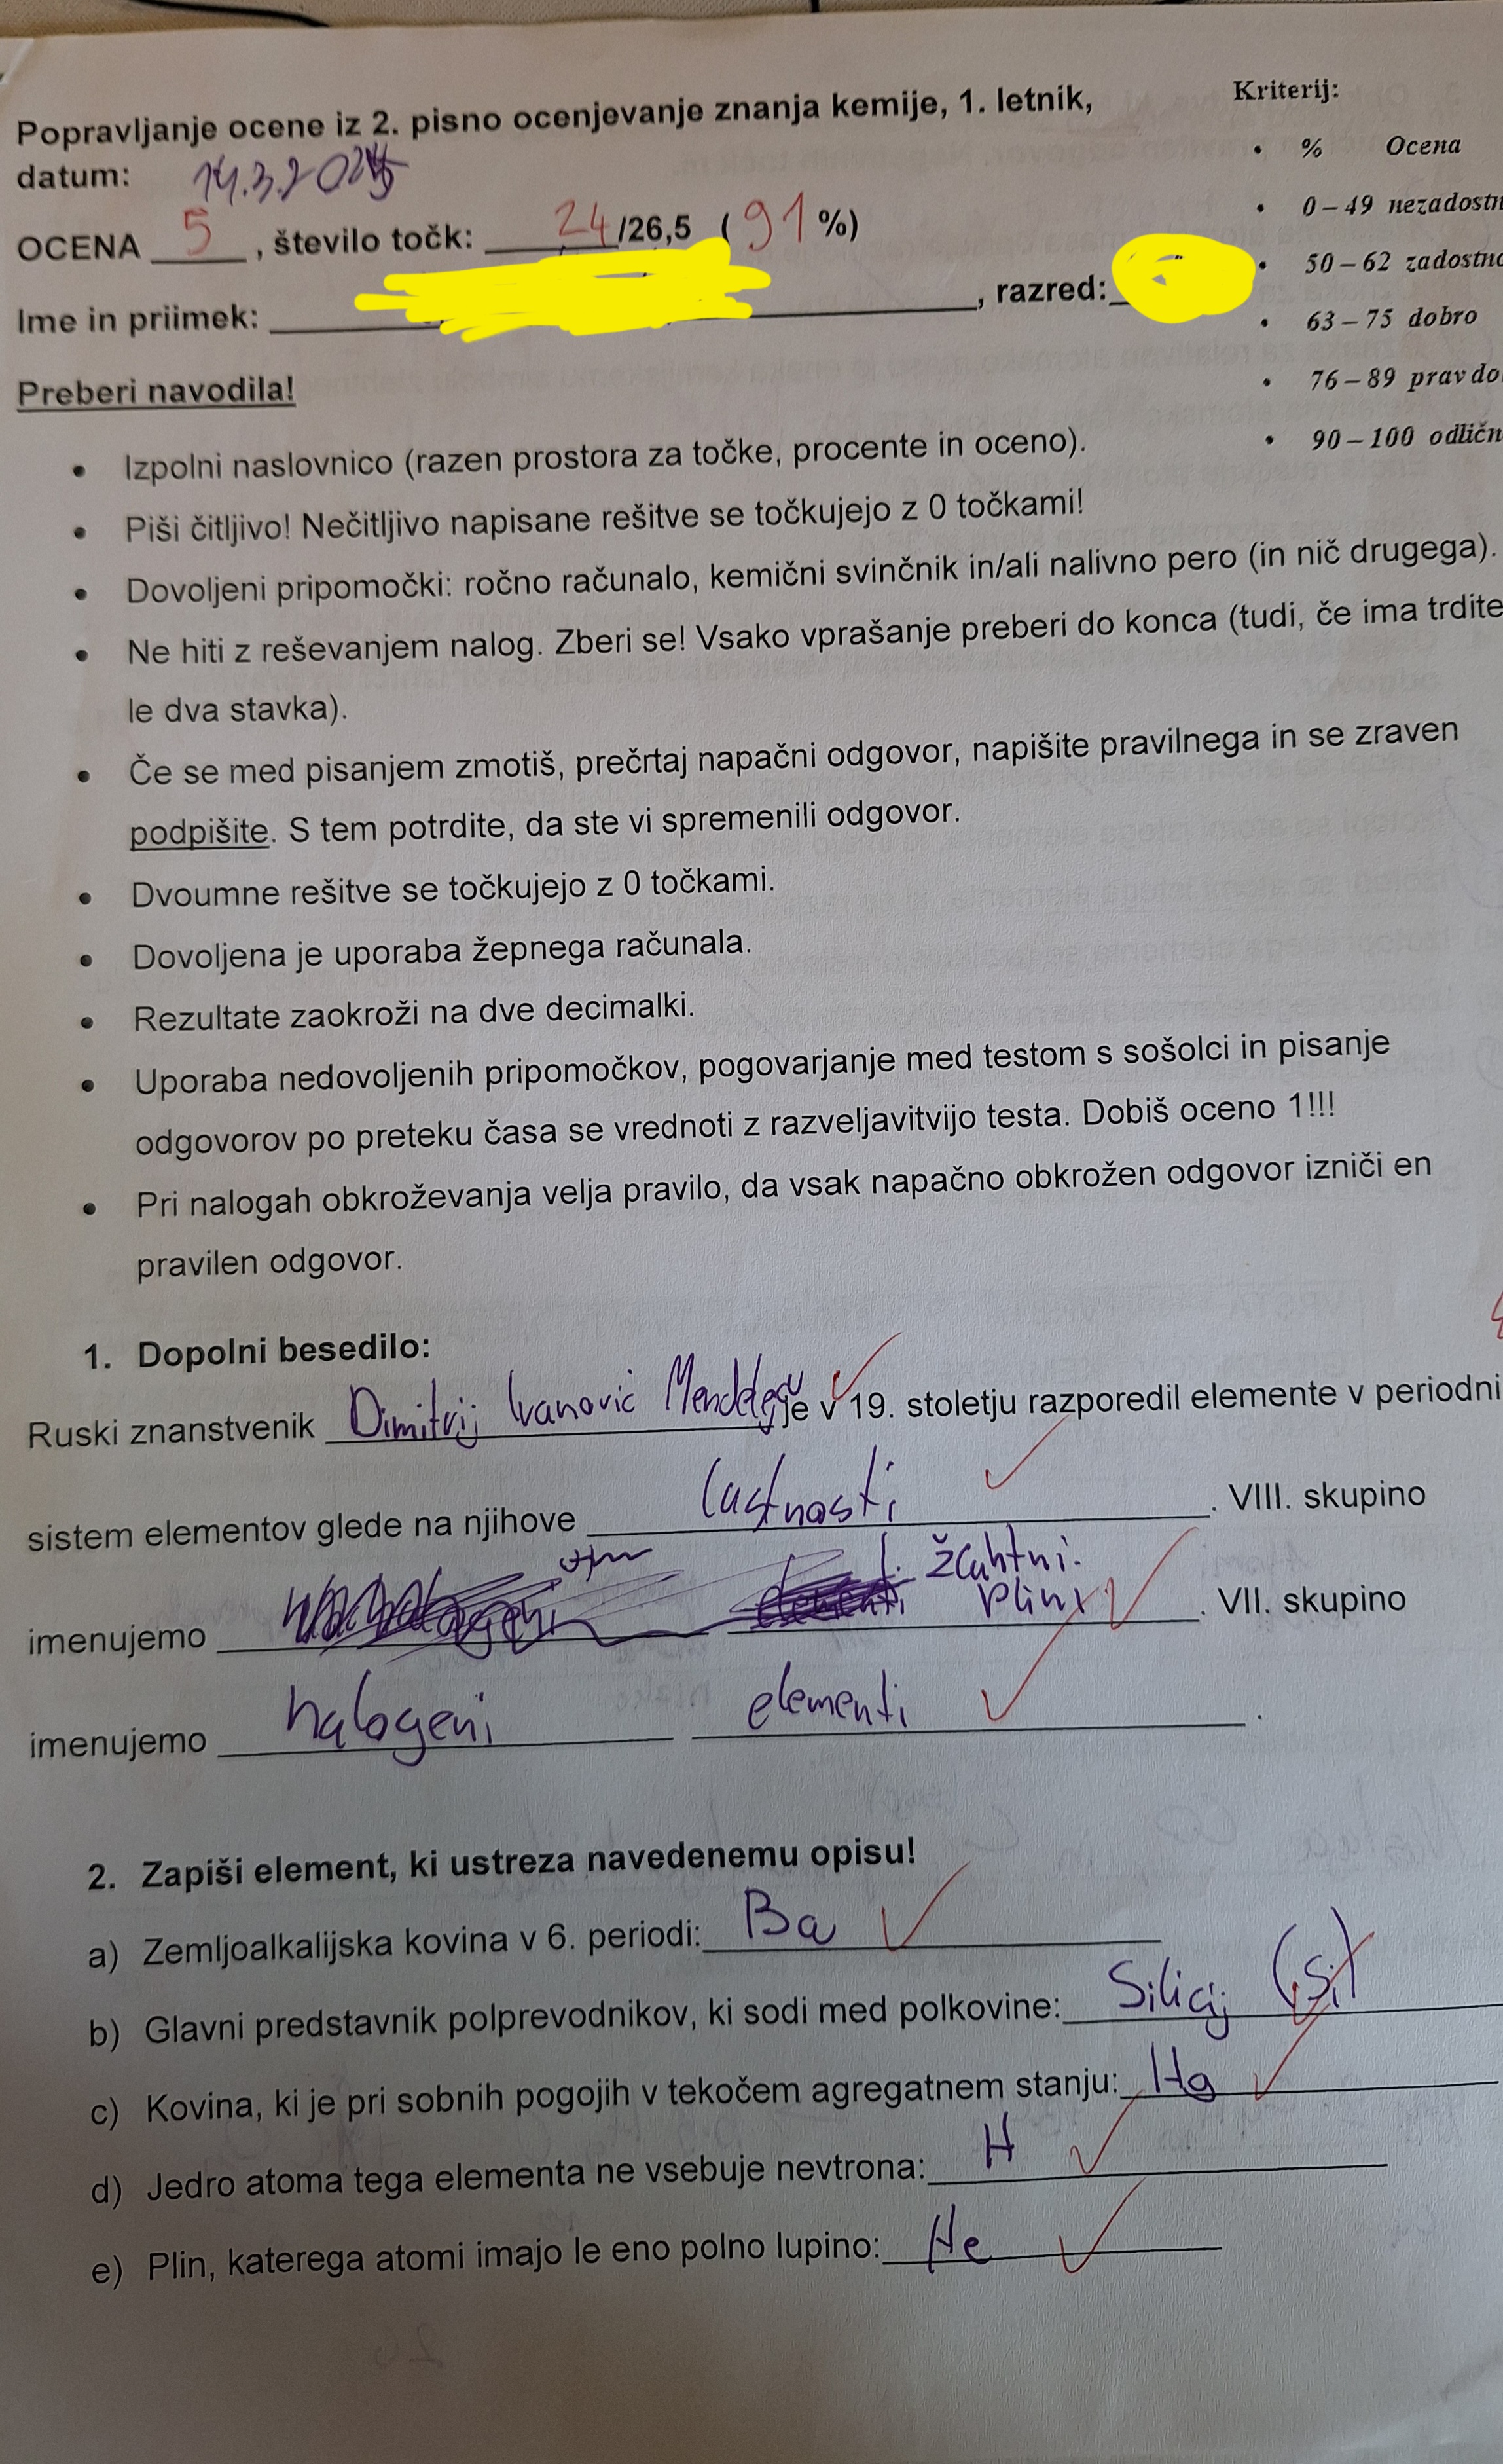 Popravljanje ocene iz 2. pisno ocenjevanje znanja kemije, 1. letnik,
datum: 14.3.2025
OCENA 5, število točk: 24/26,5 (91%)
Ime in priimek: , razred:
Kriterij:
• % Ocena
• 0 – 49 nezadostn
• 50 – 62 zadostno
• 63 – 75 dobro
• 76 – 89 prav do
• 90 – 100 odličn
Preberi navodila!
• Izpolni naslovnico (razen prostora za točke, procente in oceno).
• Piši čitljivo! Nečitljivo napisane rešitve se točkujejo z 0 točkami!
• Dovoljeni pripomočki: ročno računalo, kemični svinčnik in/ali nalivno pero (in nič drugega).
• Ne hiti z reševanjem nalog. Zberi se! Vsako vprašanje preberi do konca (tudi, če ima trdite
le dva stavka).
• Če se med pisanjem zmotiš, prečrtaj napačni odgovor, napišite pravilnega in se zraven
podpišite. S tem potrdite, da ste vi spremenili odgovor.
• Dvoumne rešitve se točkujejo z 0 točkami.
• Dovoljena je uporaba žepnega računala.
• Rezultate zaokroži na dve decimalki.
• Uporaba nedovoljenih pripomočkov, pogovarjanje med testom s sošolci in pisanje
odgovorov po preteku časa se vrednoti z razveljavitvijo testa. Dobiš oceno 1!!!
• Pri nalogah obkroževanja velja pravilo, da vsak napačno obkrožen odgovor izniči en
pravilen odgovor.
1. Dopolni besedilo:
Ruski znanstvenik Dimitrij Ivanovič Mendeljejev je v 19. stoletju razporedil elemente v periodni
sistem elementov glede na njihove lastnosti. VIII. skupino
imenujemo žlahtni plini. VII. skupino
imenujemo halogeni elementi.
2. Zapiši element, ki ustreza navedenemu opisu!
a) Zemljoalkalijska kovina v 6. periodi: Ba
b) Glavni predstavnik polprevodnikov, ki sodi med polkovine: Silicij (Si)
c) Kovina, ki je pri sobnih pogojih v tekočem agregatnem stanju: Hg
d) Jedro atoma tega elementa ne vsebuje nevtrona: H
e) Plin, katerega atomi imajo le eno polno lupino: He